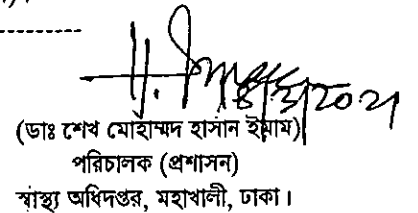 (ডাঃ শেখ মোহাম্মদ হাসান ইমাম)
পরিচালক (প্রশাসন)
স্বাস্থ্য অধিদপ্তর, মহাখালী, ঢাকা।